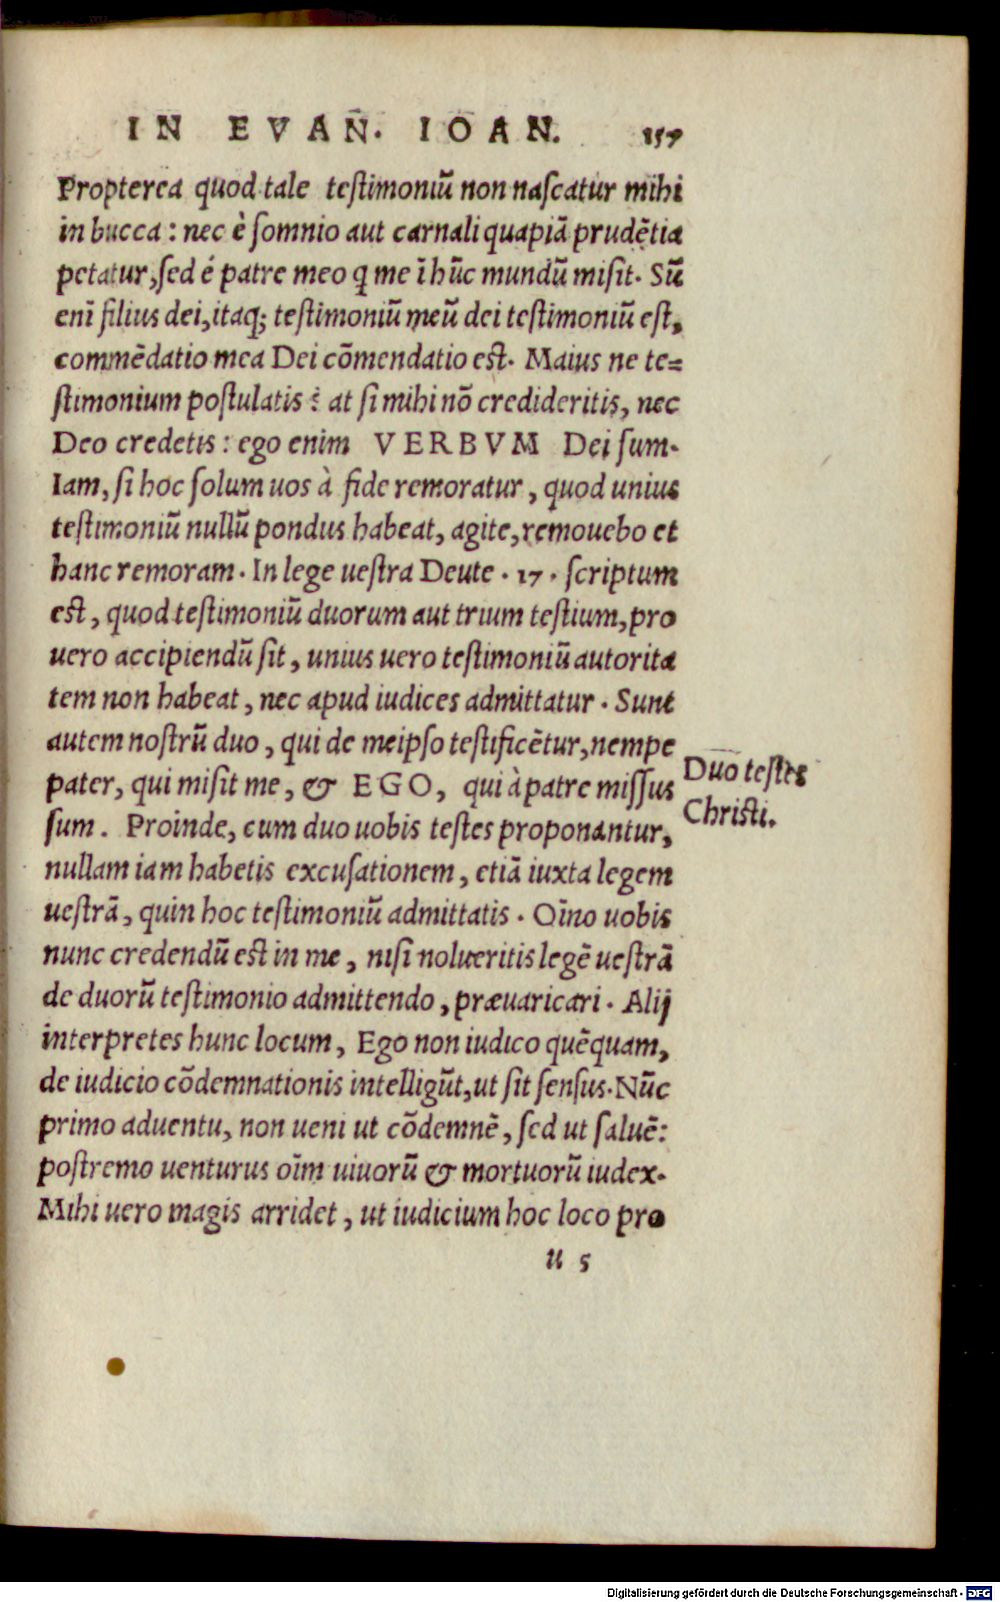 IN EVAÑ. IOAN. 157
Propterea quod tale testimoniū non nascatur mihi
in bucca : nec è somnio aut carnali quapiā prudētia
petatur, sed é patre meo q me ī hūc mundū misit. Sū
enī filius dei, itaq; testimoniū meū dei testimoniū est,
commēdatio mea Dei cōmendatio est. Maius ne te=
stimonium postulatis ? at si mihi nō credideritis, nec
Deo credetis : ego enim VERBVM Dei sum.
Iam, si hoc solum uos à fide remoratur, quod unius
testimoniū nullū pondus habeat, agite, remouebo et
hanc remoram. In lege uestra Deute . 17 . scriptum
est, quod testimoniū duorum aut trium testium, pro
uero accipiendū sit, unius uero testimoniū autorita
tem non habeat, nec apud iudices admittatur. Sunt
autem nostrū duo, qui de meipso testificētur, nempe
pater, qui misit me, & EGO, qui à patre missus
sum. Proinde, cum duo uobis testes proponantur,
nullam iam habetis excusationem, etiā iuxta legem
uestrā, quin hoc testimoniū admittatis. Oīno uobis
nunc credendū est in me, nisi nolueritis legē uestrā
de duorū testimonio admittendo, præuaricari. Alij
interpretes hunc locum, Ego non iudico quēquam,
de iudicio cōdemnationis intelligūt, ut sit sensus. Nūc
primo aduentu, non ueni ut cōdemnē, sed ut saluē:
postremo uenturus oīm uiuorū & mortuorū iudex.
Mihi uero magis arridet, ut iudicium hoc loco pro
u 5
Duo testes
Christi.
Digitalisierung gefördert durch die Deutsche Forschungsgemeinschaft - DFG